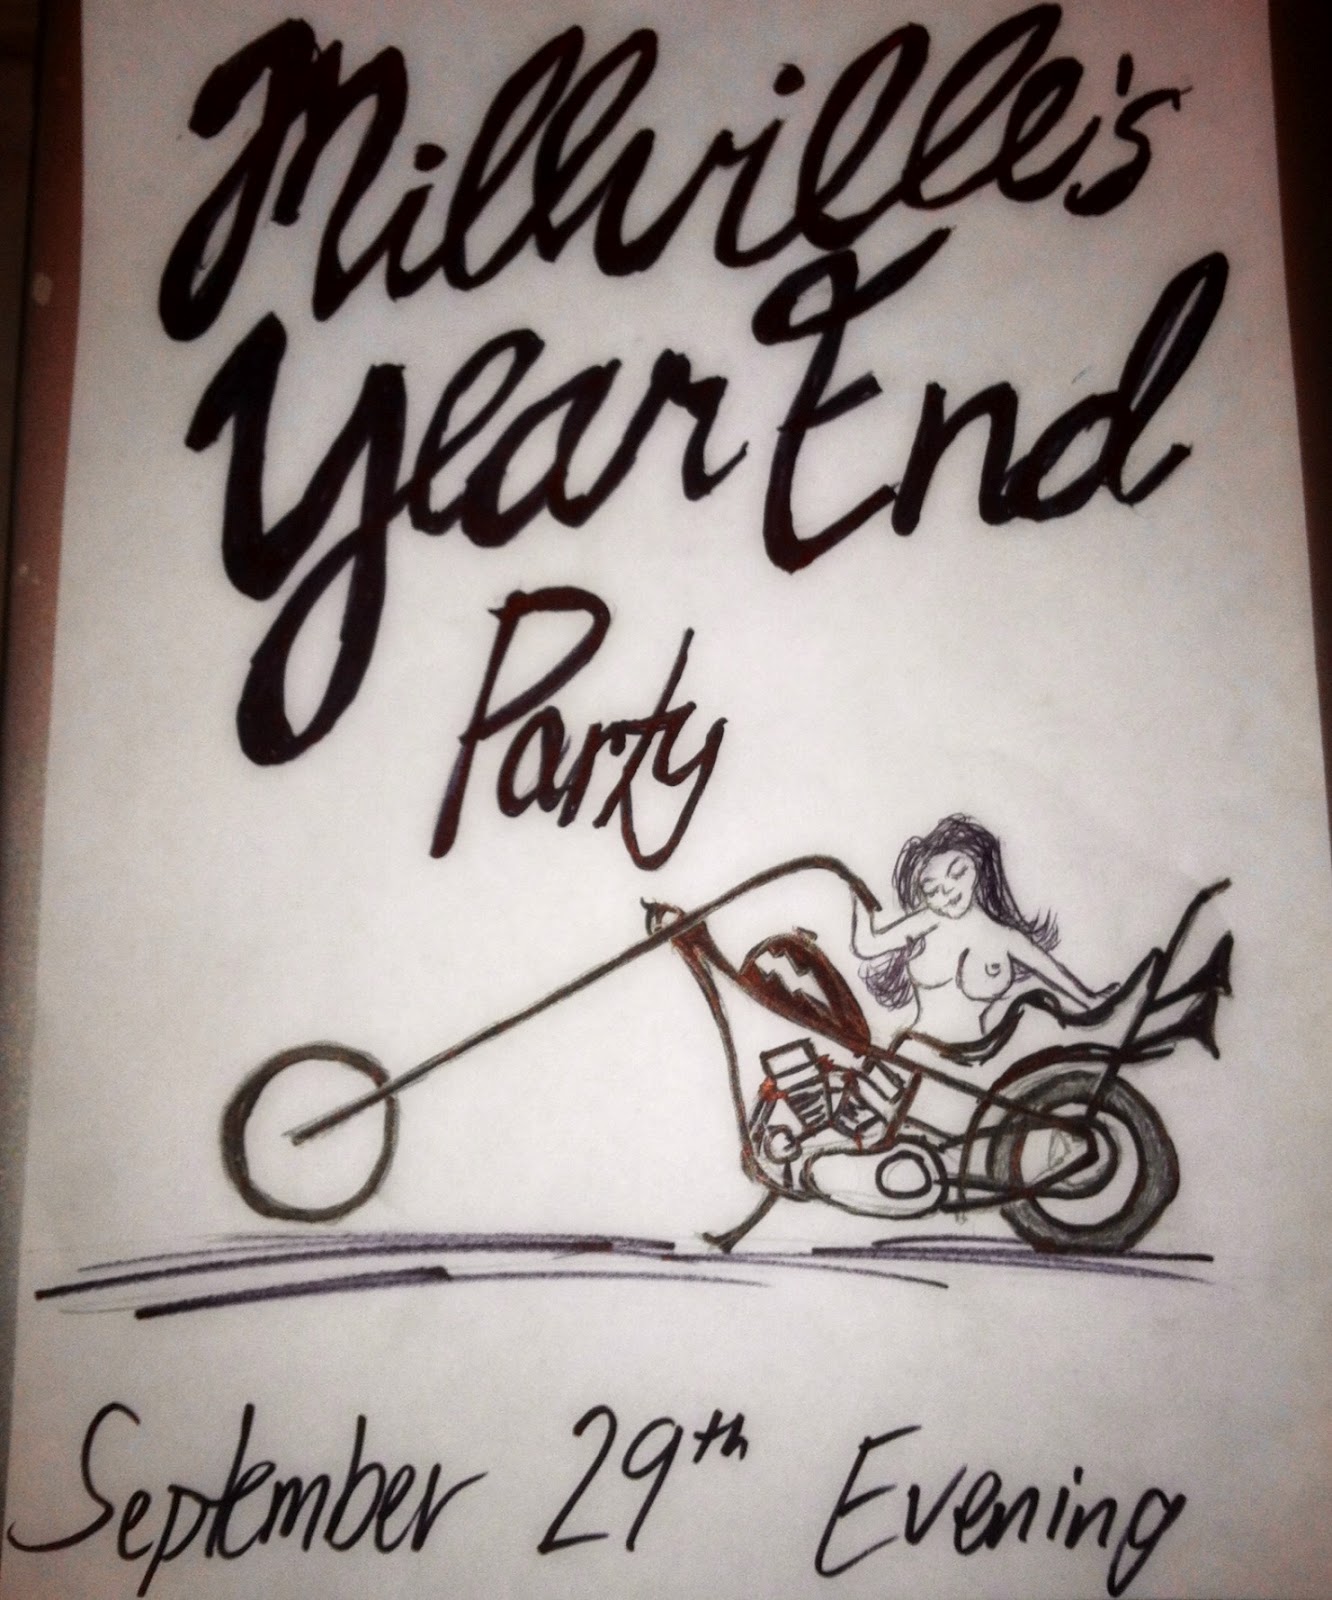 Millville's
Year End
Party
September 29th Evening